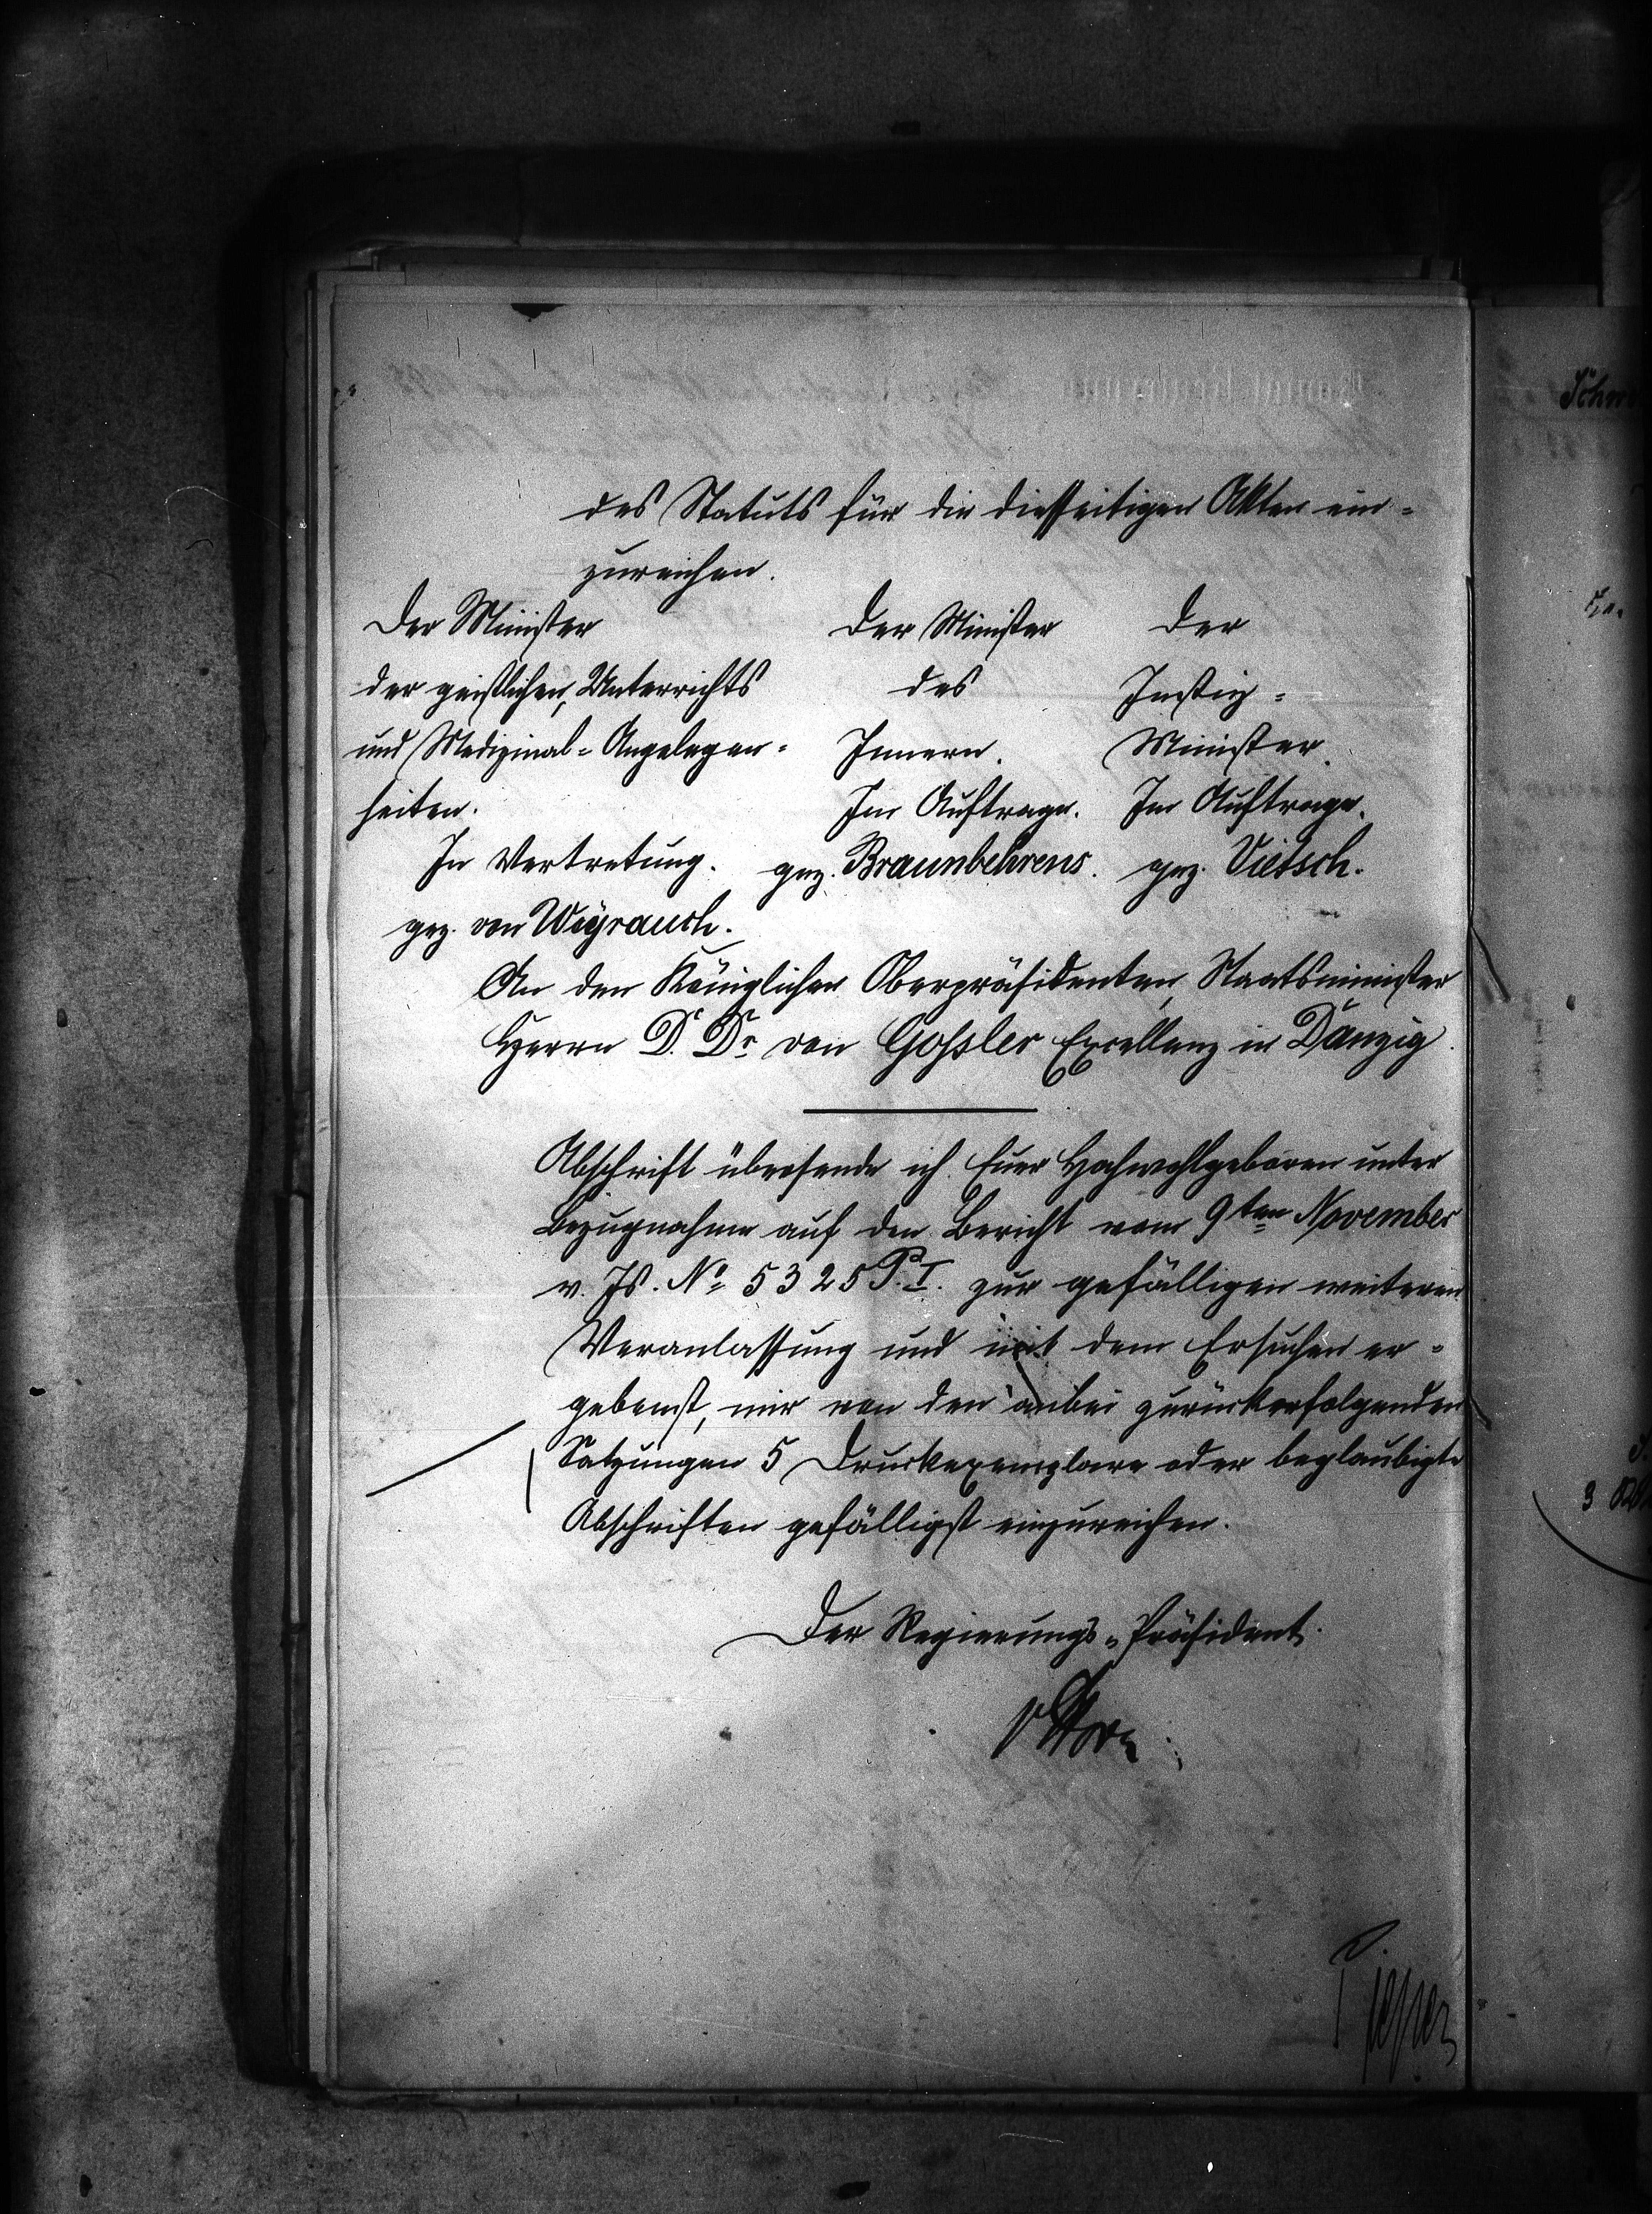 des Statuts für die diesseitigen Akten ein=
zureichen.
Der Minister
der geistlichen, Unterrichts
und Medizinal=Angelegen=
heiten.
In Vertretung.
gez. von Weyrauch.
Der Minister
des
Innern.
Im Auftrage.
gez. Braunbehrens.
Der
Justiz=
Minister.
Im Auftrage.
gez. Vietsch.
An den Königlichen Oberpräsidenten, Staatsminister
Herrn D. Dr von Goßler Excellenz in Danzig.
Abschrift übersende ich Euer Hochwohlgeboren unter
Bezugnahme auf den Bericht vom 9ten November
v. Js. No 5325 P.I. zur gefälligen weiteren
Veranlassung und mit dem Ersuchen er=
gebenst, mir von den anbei zurückerfolgenden
Satzungen 5 Druckexemplare oder beglaubigte
Abschriften gefälligst einzureichen.
Der Regierungs=Präsident.
v Horn